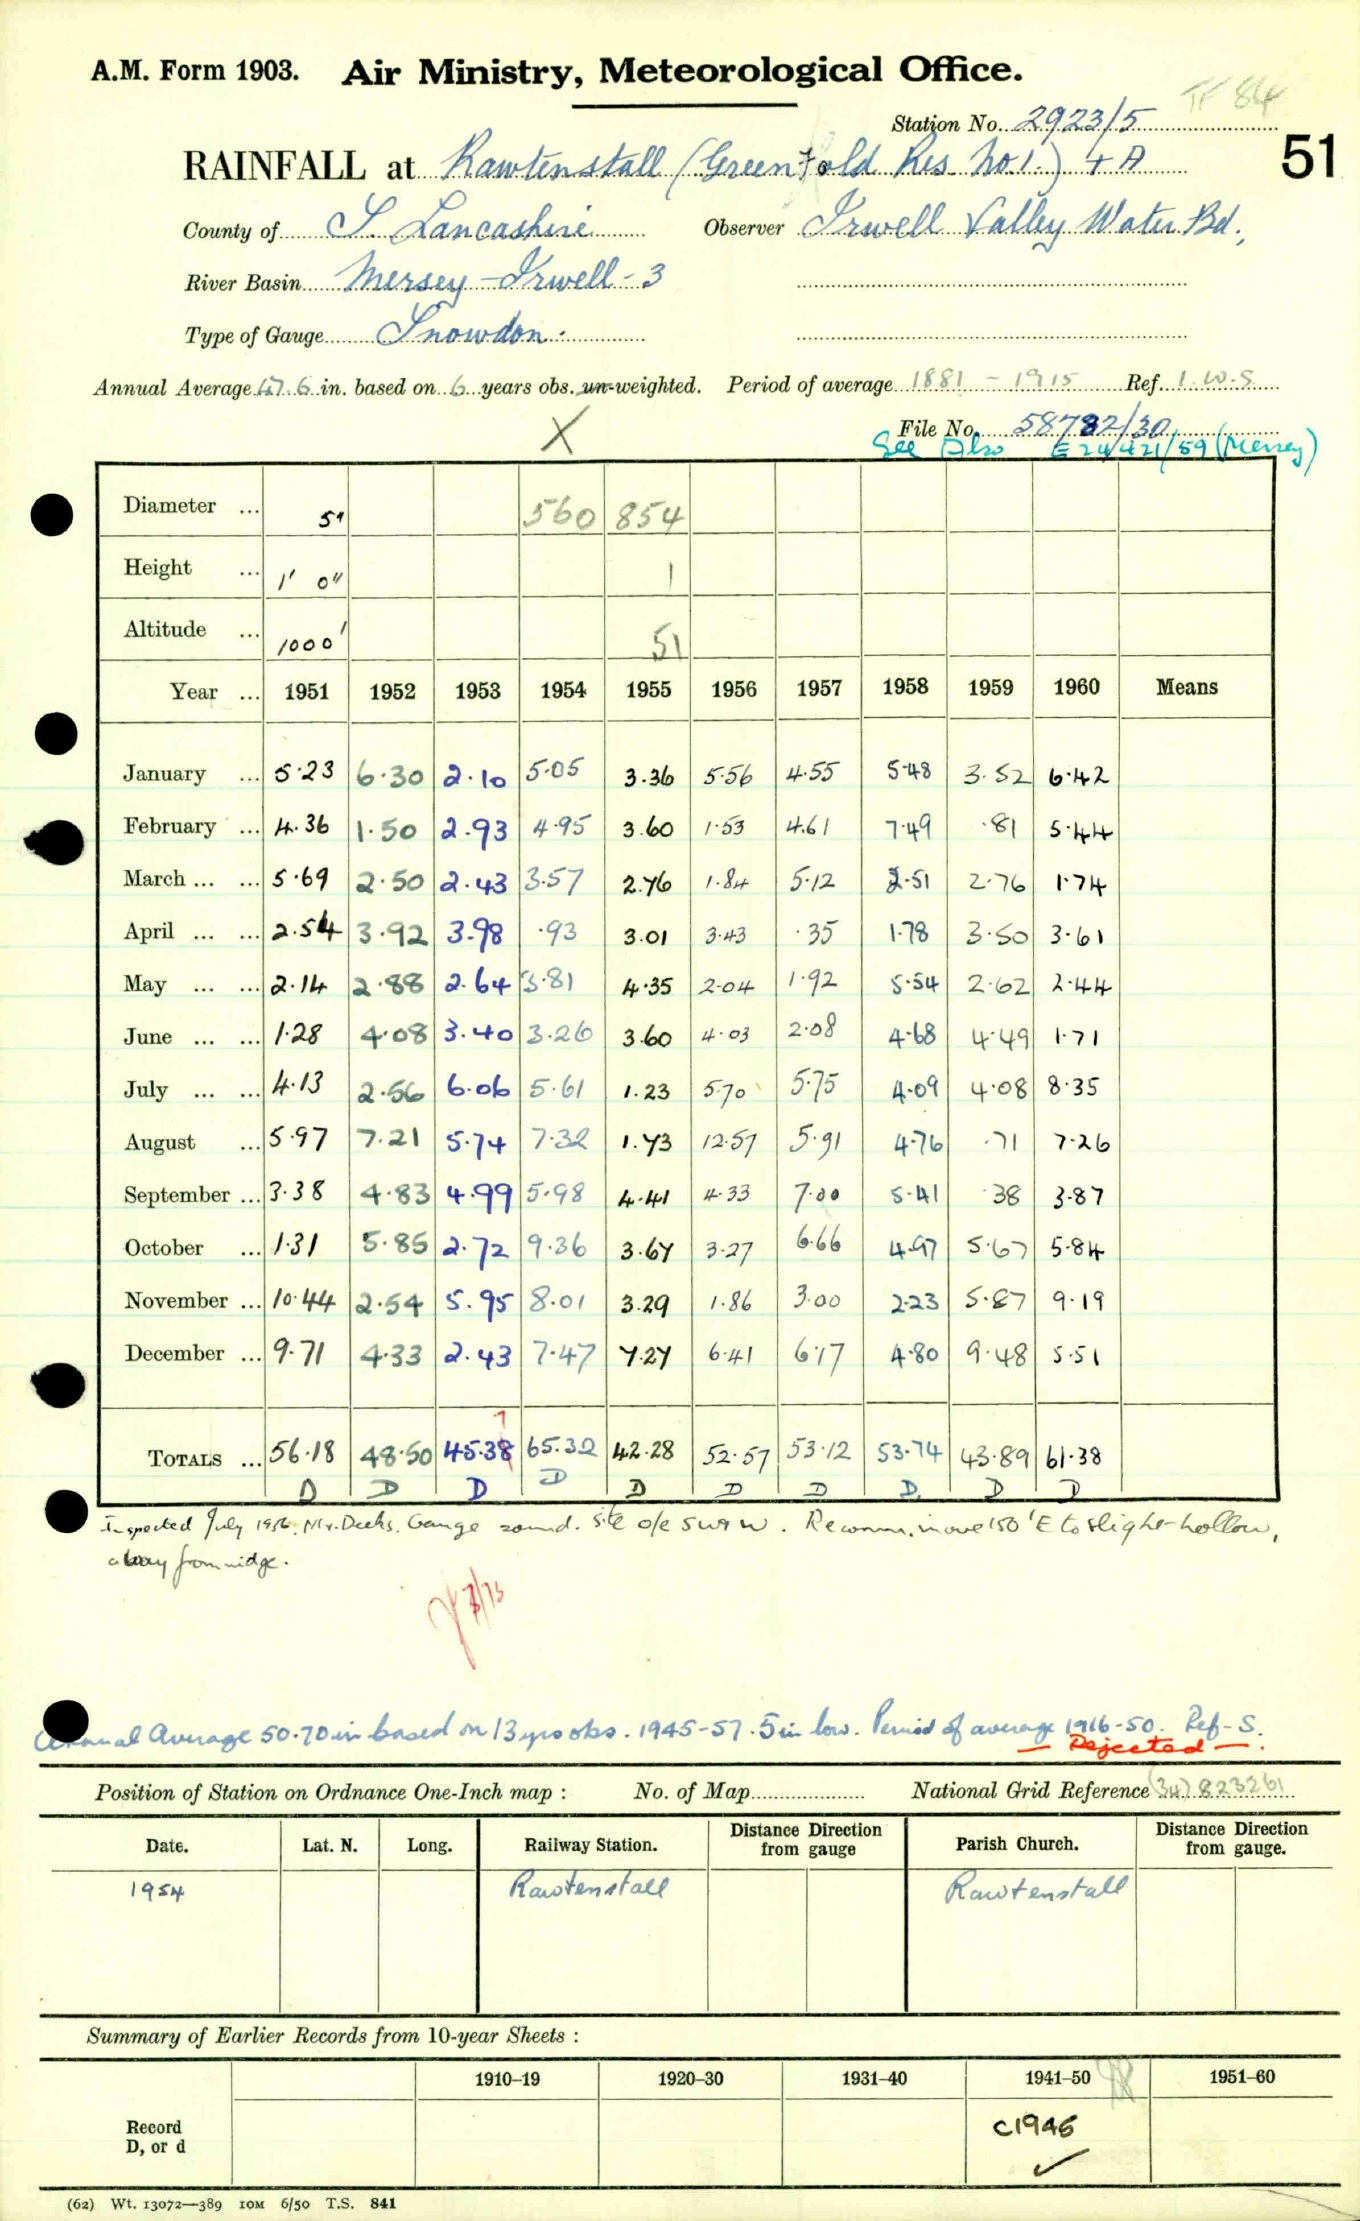 A.M. Form 1903. Air Ministry, Meteorological Office.
TF 84
Station No. 2923/5
RAINFALL at Rawtenstall (Greenfold Res. No 1.) + A
51
County of S. Lancashire Observer Irwell Valley Water Bd.,
River Basin Mersey - Irwell - 3
Type of Gauge Snowdon.
Annual Average 47.6 in. based on 6 years obs. un-weighted. Period of average 1881 - 1915 Ref. I.W.S
X
File No. 58782/30
See Also E 24421/59 (Mersey)
Diameter ... 5" 560 854
Height ... 1' 0" 1
Altitude ... 1000' 51
Year ... 1951 1952 1953 1954 1955 1956 1957 1958 1959 1960 Means
January ... 5.23 6.30 2.10 5.05 3.36 5.56 4.55 5.48 3.52 6.42
February ... 4.36 1.50 2.93 4.95 3.60 1.53 4.61 7.49 .81 5.44
March ... ... 5.69 2.50 2.43 3.57 2.76 1.84 5.12 2.51 2.76 1.74
April ... ... 2.54 3.92 3.98 .93 3.01 3.43 .35 1.78 3.50 3.61
May ... ... 2.14 2.88 2.64 3.81 4.35 2.04 1.92 5.54 2.62 2.44
June ... ... 1.28 4.08 3.40 3.26 3.60 4.03 2.08 4.68 4.49 1.71
July ... ... 4.13 2.56 6.06 5.61 1.23 5.70 5.75 4.09 4.08 8.35
August ... 5.97 7.21 5.74 7.32 1.73 12.57 5.91 4.76 .71 7.26
September ... 3.38 4.83 4.99 5.98 4.41 4.33 7.00 5.41 .38 3.87
October ... 1.31 5.85 2.72 9.36 3.67 3.27 6.66 4.97 5.67 5.84
November ... 10.44 2.54 5.95 8.01 3.29 1.86 3.00 2.23 5.87 9.19
December ... 9.71 4.33 2.43 7.47 7.27 6.41 6.17 4.80 9.48 5.51
7
TOTALS ... 56.18 48.50 45.38 65.32 42.28 52.57 53.12 53.74 43.89 61.38
D D D D D D D D D D
Inspected July 1956 Mr. Deeks. Gauge sound. Site o/e SW & W. Recomm. move 150' E to slight hollow,
away from ridge.
8/73
Annual Average 50.70 in based on 13 yrs obs. 1945-57. 5 in low. Period of average 1916-50. Ref- S.
— Rejected —.
Position of Station on Ordnance One-Inch map : No. of Map National Grid Reference (34) 823261
Date. Lat. N. Long. Railway Station. Distance from Direction gauge Parish Church. Distance from Direction gauge.
1954 Rawtenstall Rawtenstall
Summary of Earlier Records from 10-year Sheets :
1910–19 1920–30 1931–40 1941–50 1951–60
Record
D, or d
C1945
✓
(62) Wt. 13072—389 10M 6/50 T.S. 841